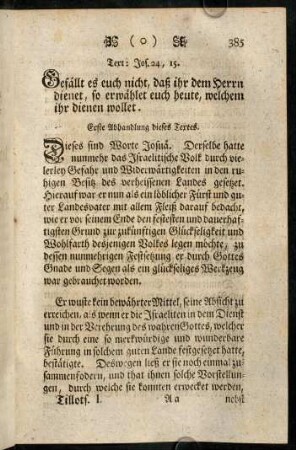 ( o ) 385
Text: Jos. 24, 15.
Gefällt es euch nicht, daß ihr dem Herrn
dienet, so erwählet euch heute, welchem
ihr dienen wollet.
Erste Abhandlung dieses Textes.
Dieses sind Worte Josuä. Derselbe hatte
nunmehr das Israelitische Volk durch vie-
lerley Gefahr und Widerwärtigkeiten in den ru-
higen Besitz des verheissenen Landes gesetzet.
Hierauf war er nun als ein löblicher Fürst und gu-
ter Landesvater mit allem Fleiß darauf bedacht,
wie er vor seinem Ende den festesten und dauerhaf-
tigsten Grund zur zukünftigen Glückseligkeit und
Wohlfarth desjenigen Volkes legen möchte, zu
dessen nunmehrigen Festsetzung er durch Gottes
Gnade und Segen als ein glückseliges Werkzeug
war gebrauchet worden.
Er wuste kein bewährter Mittel, seine Absicht zu
erreichen, als wenn er die Israeliten in dem Dienst
und in der Verehrung des wahren Gottes, welcher
sie durch eine so merkwürdige und wunderbare
Führung in solchem guten Lande festgesetzet hatte,
bestätigte. Deswegen ließ er sie noch einmal zu-
sammenfodern, und that ihnen solche Vorstellun-
gen, durch welche sie konnten erwecket werden,
Tillots. I. A a nebst